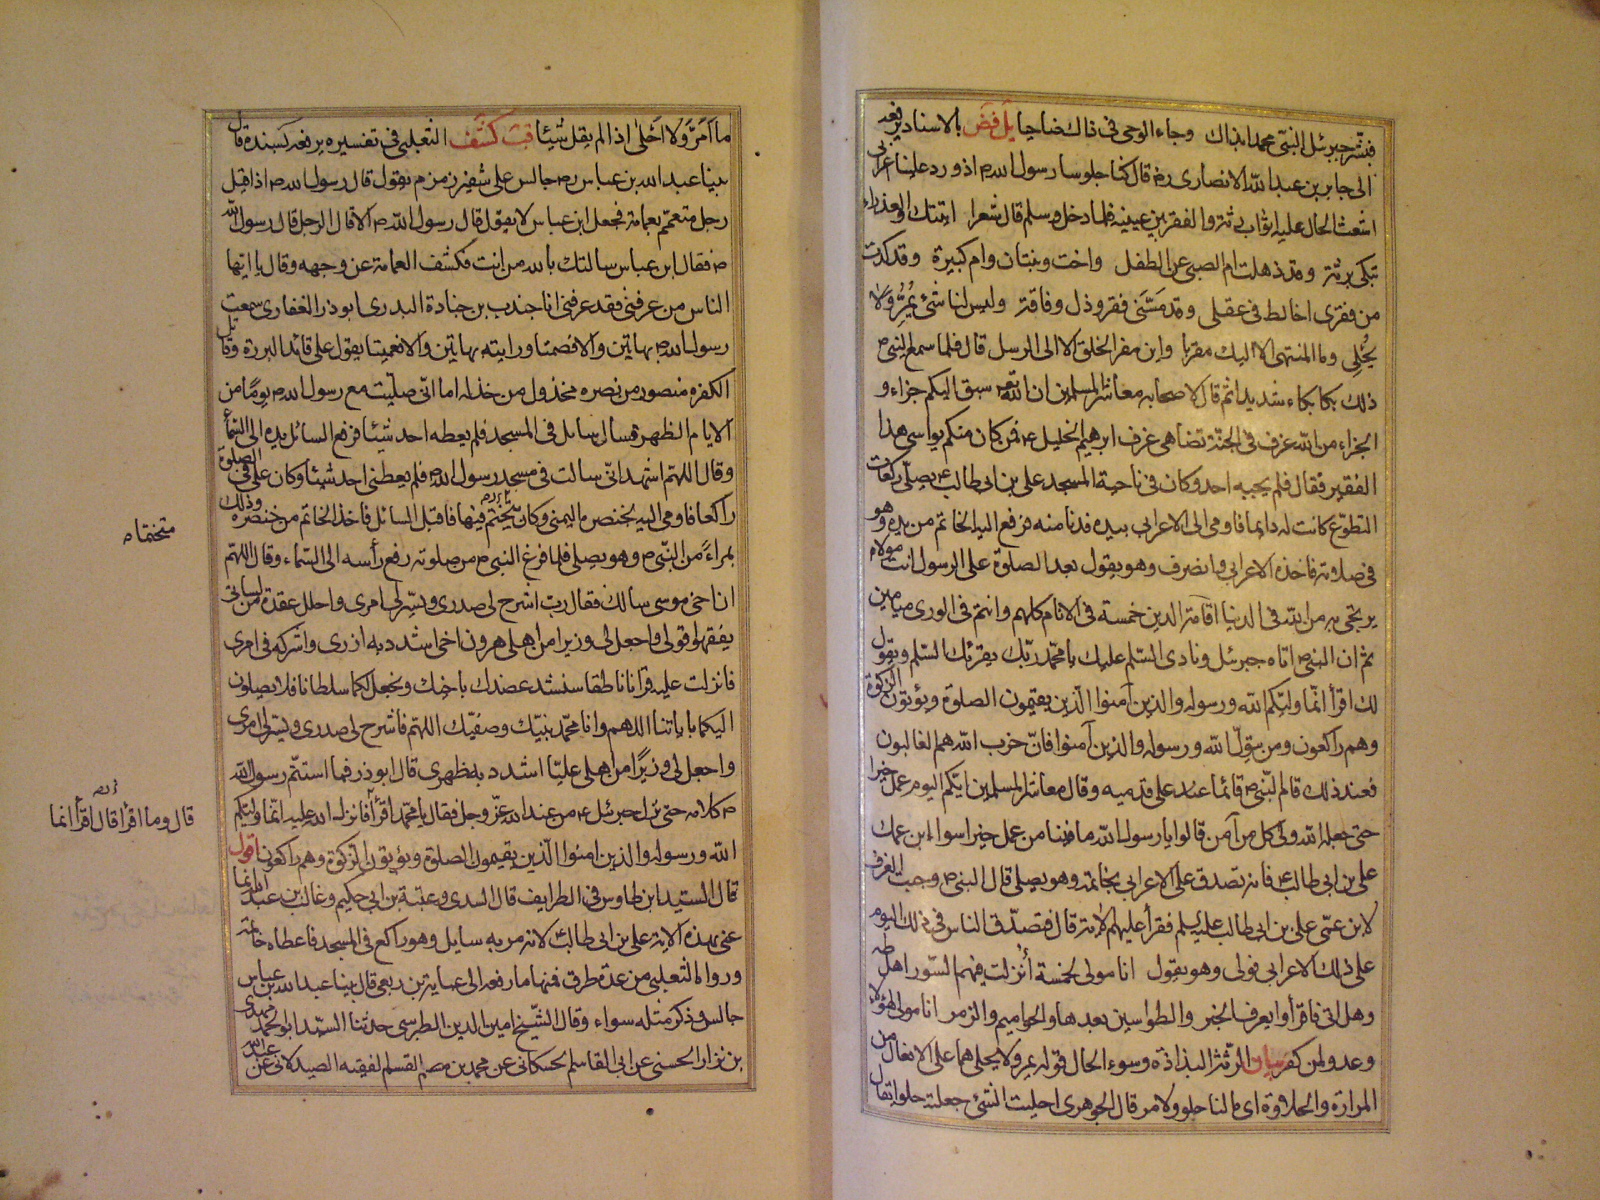 فبشر جبرئيل النبي محمدا بذاك وجاء الوحي في ذاك ضاحيا يل فض بالاسناد يرفعه
الى جابر بن عبد الله الانصاري رض قال كنا جلوسا رسول الله ص اذ ورد علينا اعرابي
اشعث الحال عليه اثواب رثة والفقر بين عينيه فلما دخل وسلم قال شعرا اتيتك والعذراء
تبكي برنة وقد ذهلت ام الصبي عن الطفل واخت وبنتان وام كبيرة وقد كدت
من فقري اخالط في عقلي وقد مسني فقر وذل وفاقة وليس لنا شئ يمر ولا
يحلي وما المنتهى الا اليك مفرنا واين مفر الخلق الا الى الرسل قال فلما سمع النبي ص
ذلك بكا بكاء شديدا ثم قال لاصحابه معاشر المسلمين ان الله تع سبق اليكم جزاء و
الجزاء من الله غرف في الجنة تضاهي غرف ابرهيم الخليل ع فمن كان منكم يواسي هذا
الفقير فقال فلم يجبه احد وكان في ناحية المسجد علي بن ابي طالب ع يصلي ركعات
التطوع كانت له دايما فاومى الى الاعرابي بيده فدنا منه فرفع اليه الخاتم من يده وهو
في صلاته فاخذه الاعرابي وانصرف وهو يقول بعد الصلوة على الرسول انت مولا
يرتجى به من الله في الدنيا اقامة الدين خمسة في الانام كلهم وانتم في الورى ميامين
ثم ان النبي ص اتاه جبرئيل ونادى السلام عليك يا محمد ربك يقرئك السلم ويقول
لك اقرأ انما وليكم الله ورسوله والذين آمنوا الذين يقيمون الصلوة ويؤتون الزكوة
وهم راكعون ومن يتول الله ورسوله والذين آمنوا فان حزب الله هم الغالبون
فعند ذلك قام النبي ص قائما عند على قدميه وقال معاشر المسلمين ايكم اليوم عمل خيرا
حتى جعله الله ولي كل من آمن قالوا يا رسول الله ما فينا من عمل خيرا سوا ابن عمك
علي بن ابي طالب ع فانه تصدق على الاعرابي بخاتمه وهو يصلي قال النبي ص وجبت الغرف
لابن عمي علي بن ابي طالب عليه السلم فقرأ عليهم الاية قال فتصدق الناس في ذلك اليوم
على ذلك الاعرابي فولى وهو يقول انا مولى لخمسة أنزلت فيهم السور اهل طه
وهل اتى فاقرأوا يعرف الخبر والطواسين بعدها والحواميم والزمر انا مولى لهؤلاء
وعدو لمن كفر بيان الرثة البذاذة وسوء الحال قوله يمر ولا يحلي هما على الافعال من
المرارة والحلاوة اي ما لنا حلو ولا مر قال الجوهري احليت الشئ جعلته حلوا يقال
ما أمر ولا احلى اذا لم يقل شيئا كشف الثعلبي في تفسيره يرفعه بسنده قال
بينا عبد الله بن عباس رض جالس على شفير زمزم يقول قال رسول الله ص اذ اقبل
رجل متعمم بعمامة فجعل ابن عباس لا يقول قال رسول الله ص الا قال الرجل قال رسول الله
ص فقال ابن عباس سالتك بالله من انت فكشف العمامة عن وجهه وقال يا ايها
الناس من عرفني فقد عرفني انا جندب بن جنادة البدري ابو ذر الغفاري سمعت
رسول الله ص بهاتين والا فصمتا ورايته بهاتين والا فعميتا يقول علي قائد البررة وقاتل
الكفرة منصور من نصره مخذول من خذله اما اني صليت مع رسول الله ص يوما من
الايام الظهر فسأل سائل في المسجد فلم يعطه احد شيئا فرفع السائل يده الى السماء
وقال اللهم اشهد اني سالت في مسجد رسول الله ص فلم يعطني احد شيئا وكان علي في الصلوة
راكعا فاومى اليه بخنصره اليمنى وكان يتختم فيها فاقبل السائل فاخذ الخاتم من خنصره وذلك
بمراء من النبي ص وهو يصلي فلما فرغ النبي ص من صلوته رفع رأسه الى السماء وقال اللهم
ان اخي موسى سالك فقال رب اشرح لي صدري ويسر لي امري واحلل عقدة من لساني
يفقهوا قولي واجعل لي وزيرا من اهلي هرون اخي اشدد به ازري واشركه في امري
فانزلت عليه قرآنا ناطقا سنشد عضدك باخيك ونجعل لكما سلطانا فلا يصلون
اليكما باياتنا اللهم وانا محمد نبيك وصفيك اللهم فاشرح لي صدري ويسر لي امري
واجعل لي وزيرا من اهلي عليا اشدد به ظهري قال ابو ذر فما استتم رسول الله
ص كلامه حتى نزل جبرئيل ع من عند الله عز وجل فقال يا محمد اقرأ فانزل الله عليه انما وليكم
الله ورسوله والذين امنوا الذين يقيمون الصلوة ويؤتون الزكوة وهم راكعون اقول
قال السيد ابن طاوس في الطرايف قال السدي وعتبة بن ابي حكيم وغالب بن عبد الله انما
عنى بهذه الاية علي بن ابي طالب ع لانه مر به سايل وهو راكع في المسجد فاعطاه خاتمه
ورواه الثعلبي من عدة طرق فمنها ما رفعه الى عباية بن ربعي قال بينا عبد الله بن عباس
جالس وذكر مثله سواء وقال الشيخ امين الدين الطبرسي حدثنا السيد ابو محمد مهدي
بن نزار الحسني عن ابي القاسم الحسكاني عن محمد بن القسم الفقيه الصيدلاني عن
متختما م
قال وما اقرأ قال اقرأ انما